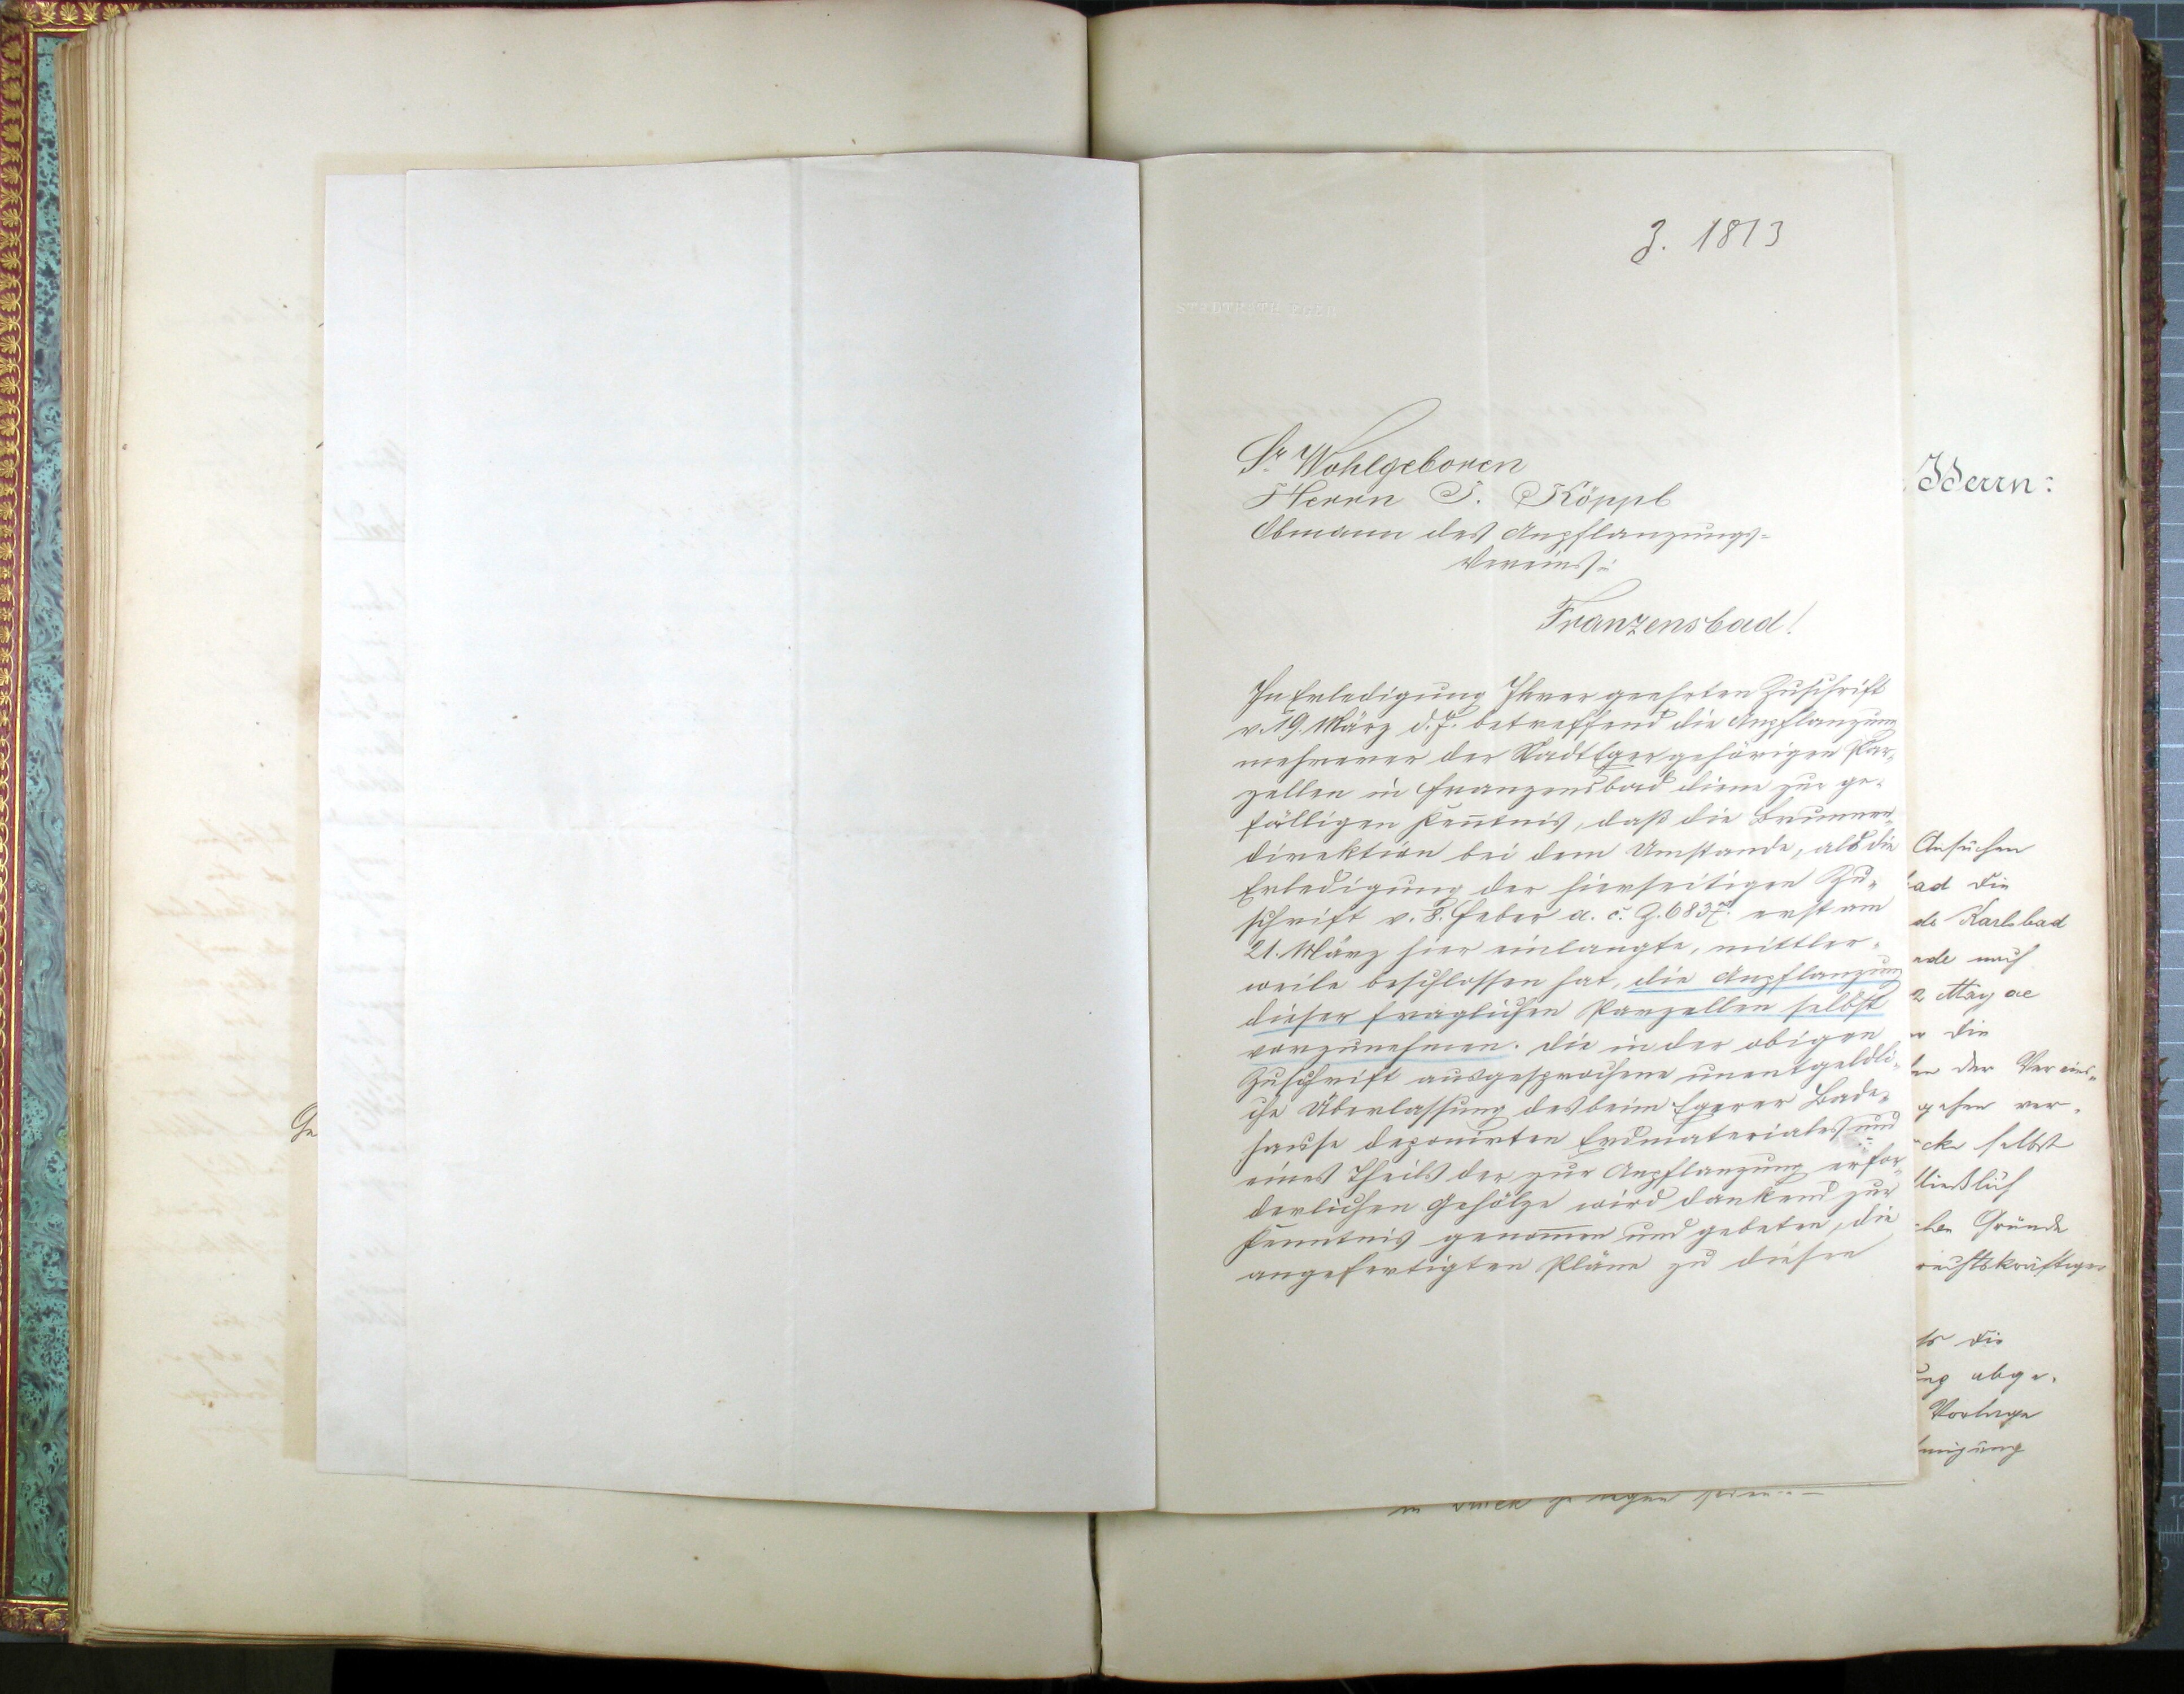 Z. 1813
STADTRATH EGER
Sr Wohlgeboren
Herrn J. Köppl
Obmann des Anpflanzungs=
Vereins:
Franzensbad!
In Erledigung Ihrer geehrten Zuschrift
v. 19. März d. J. betreffend die Anpflanzung
mehrerer der Stadt Eger gehörigen Par„
zellen in Franzensbad diene zur ge„
fälligen Kenntnis, daß die Brunnen„
direktion bei dem Umstande, als die
Erledigung der hierseitigen Zu„
schrift v. 8. Feber a. c. Z. 6837 erst am
21. März hier einlangte, mittler„
weile beschlossen hat, die Anpflanzung
dieser fraglichen Parzellen selbst
vorzunehmen. Die in der obigen
Zuschrift ausgesprochene unentgeldli„
che Überlassung des beim Egerer Bade„
hause deponirten Erdmateriales und
eines Theils der zur Anpflanzung erfor„
derlichen Gehölze wird dankend zur
Kenntnis genom̄en und gebeten, die
angefertigten Pläne zu diesen
Herrn:
Ansuchen
ad die
ds Karlsbad
nde nach
2 May ae
die
der Vereins„
gehen ver„
cke selbst
ließlich
Gründe
rechtskräftigen
die
ung abge„
Vorlage
Ge